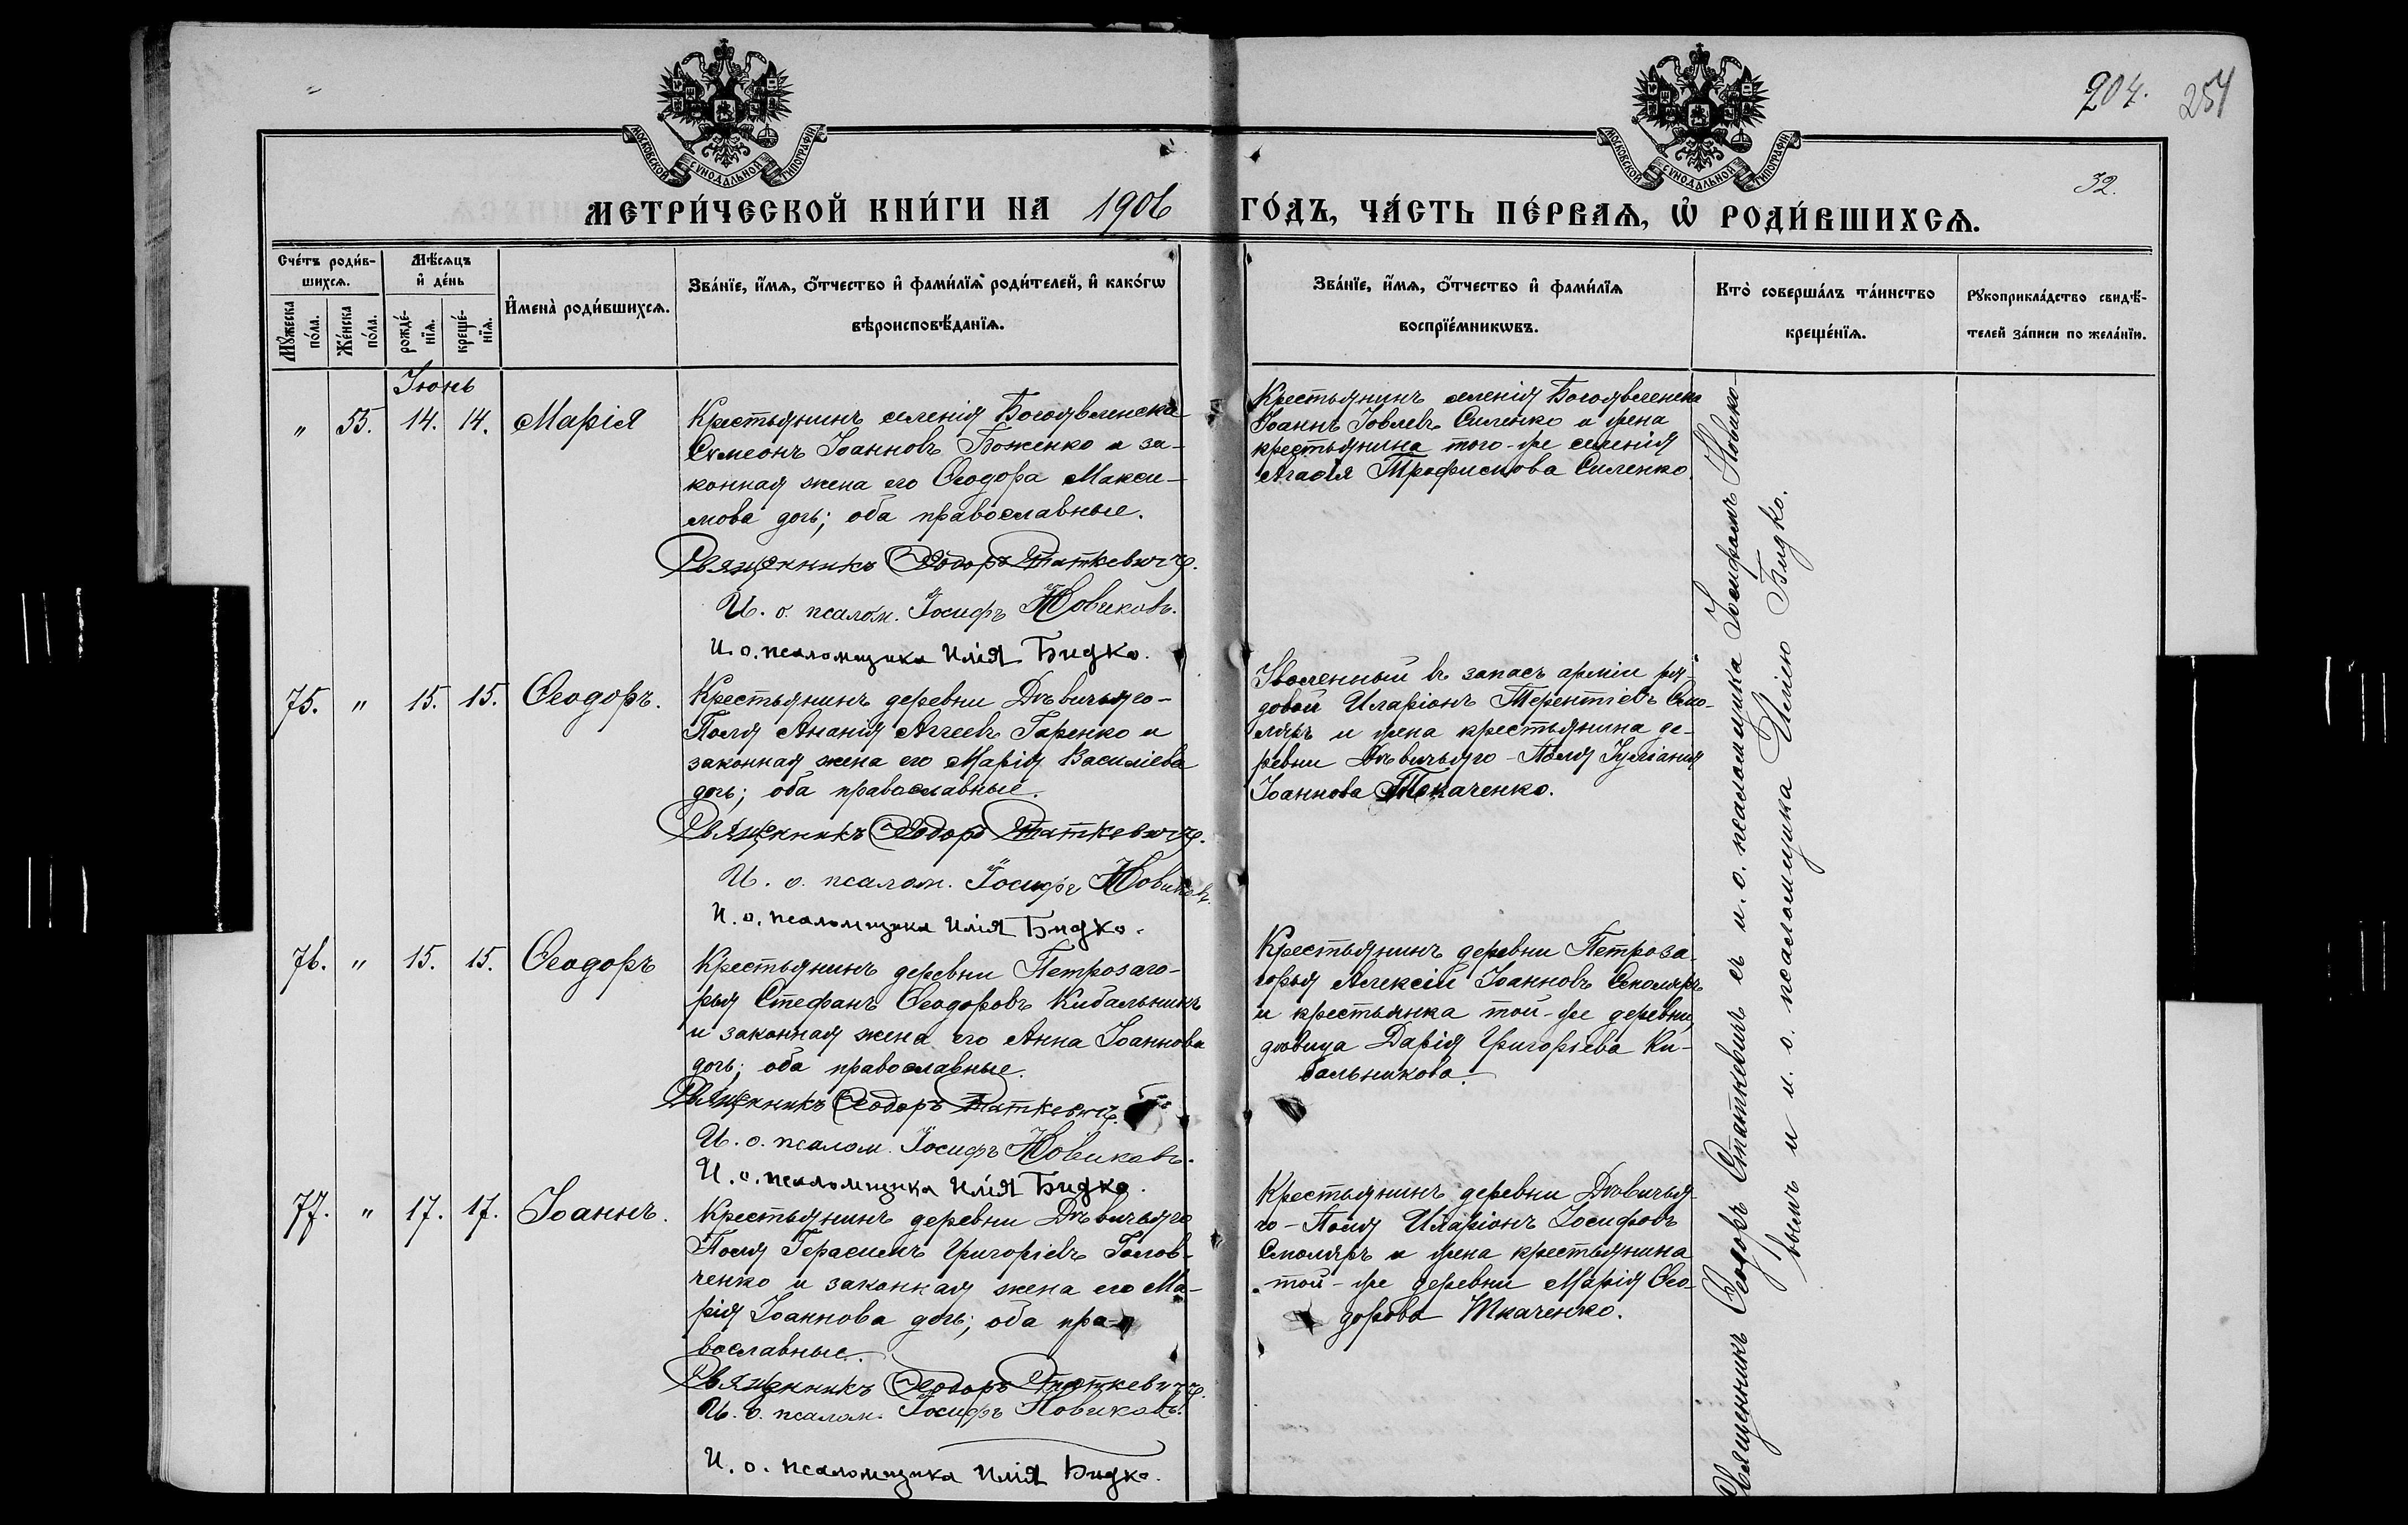 204. 254
32.
МОСКОВСКОЙ СѴНОДАЛЬНОЙ ТИПОГРАФІИ
МОСКОВСКОЙ СѴНОДАЛЬНОЙ ТИПОГРАФІИ
МЕТРИ́ЧЕСКОЙ КНИ́ГИ НА 1906 ГО́ДЪ, ЧА́СТЬ ПЕ́РВАѦ, Ѽ РОДИ́ВШИХСѦ.
Сче́тъ роди́в-
шихсѧ.
Мꙋ́жеска по́ла.
Же́нска по́ла.
Мѣ́сѧцъ
и҆ де́нь
рожде́-
нїѧ.
креще́-
нїѧ.
И҆мена̀ роди́вшихсѧ.
Зва́нїе, и҆́мѧ, ѻ҆́тчество и҆ фами́лїѧ роди́телей, и҆ како́гѡ
вѣроисповѣ́данїѧ.
Зва́нїе, и҆́мѧ, ѻ҆́тчество и҆ фами́лїѧ
воспрїе́мникѡвъ.
Кто̀ соверша́лъ та́инство
креще́нїѧ.
Рꙋкоприкла́дство свидѣ́-
телей за́писи по жела́нїю.
Іюнь
" 55. 14. 14. Марія
Крестьянинъ селенія Богоявленска
Сѵмеонъ Іоанновъ Боженко и за-
конная жена его Ѳеодора Макси-
мова дочь; оба православные.
Священникъ Ѳеодоръ Статкевичъ.
И. о. псалом. Іосифъ Новиковъ.
И. о. псаломщика Илія Бидко.
Крестьянинъ селенія Богоявленска
Іоаннъ Іовлевъ Силенко и жена
крестьянина того-же селенія
Агаѳія Трофимова Силенко.
75. " 15. 15. Ѳеодоръ.
Крестьянинъ деревни Дѣвичьяго-
Поля Ананія Аггеевъ Гаренко и
законная жена его Марія Василіева
дочь; оба православные.
Священникъ Ѳеодоръ Статкевичъ.
И. о. псалом. Іосифъ Новиковъ.
И. о. псаломщика Илія Бидко.
Уволенный въ запасъ арміи ря-
довой Иларіонъ Терентіевъ Смо-
ляръ и жена крестьянина де-
ревни Дѣвичьяго-Поля Іуліанія
Іоаннова Ткаченко.
76. " 15. 15. Ѳеодоръ
Крестьянинъ деревни Петрозаго-
рья Стефанъ Ѳеодоровъ Кибальникъ
и законная жена его Анна Іоаннова
дочь; оба православные.
Священникъ Ѳеодоръ Статкевичъ.
И. о. псалом. Іосифъ Новиковъ.
И. о. псаломщика Илія Бидко.
Крестьянинъ деревни Петроза-
горья Алексій Іоанновъ Смоляръ
и крестьянка той-же деревни,
дѣвица Дарія Григоріева Ки-
бальникова.
77. " 17. 17. Іоаннъ.
Крестьянинъ деревни Дѣвичьяго
Поля Герасимъ Григоріевъ Голов-
ченко и законная жена его Ма-
рія Іоаннова дочь; оба пра-
вославные.
Священникъ Ѳеодоръ Статкевичъ.
И. о. псалом. Іосифъ Новиковъ.
И. о. псаломщика Илія Бидко.
Крестьянинъ деревни Дѣвичья-
го-Поля Иларіонъ Іосифовъ
Смоляръ и жена крестьянина
той-же деревни Марія Ѳео-
дорова Ткаченко.
Священникъ Ѳеодоръ Статкевичъ съ и. о. псаломщика Іосифомъ Новико-
вымъ и и. о. псаломщика Иліею Бидко.